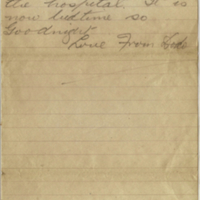 the hospital. It is
now bedtime so
Goodnight
Love From